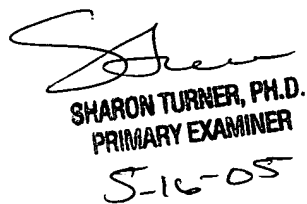 SHARON TURNER, PH.D.
PRIMARY EXAMINER
5-16-05